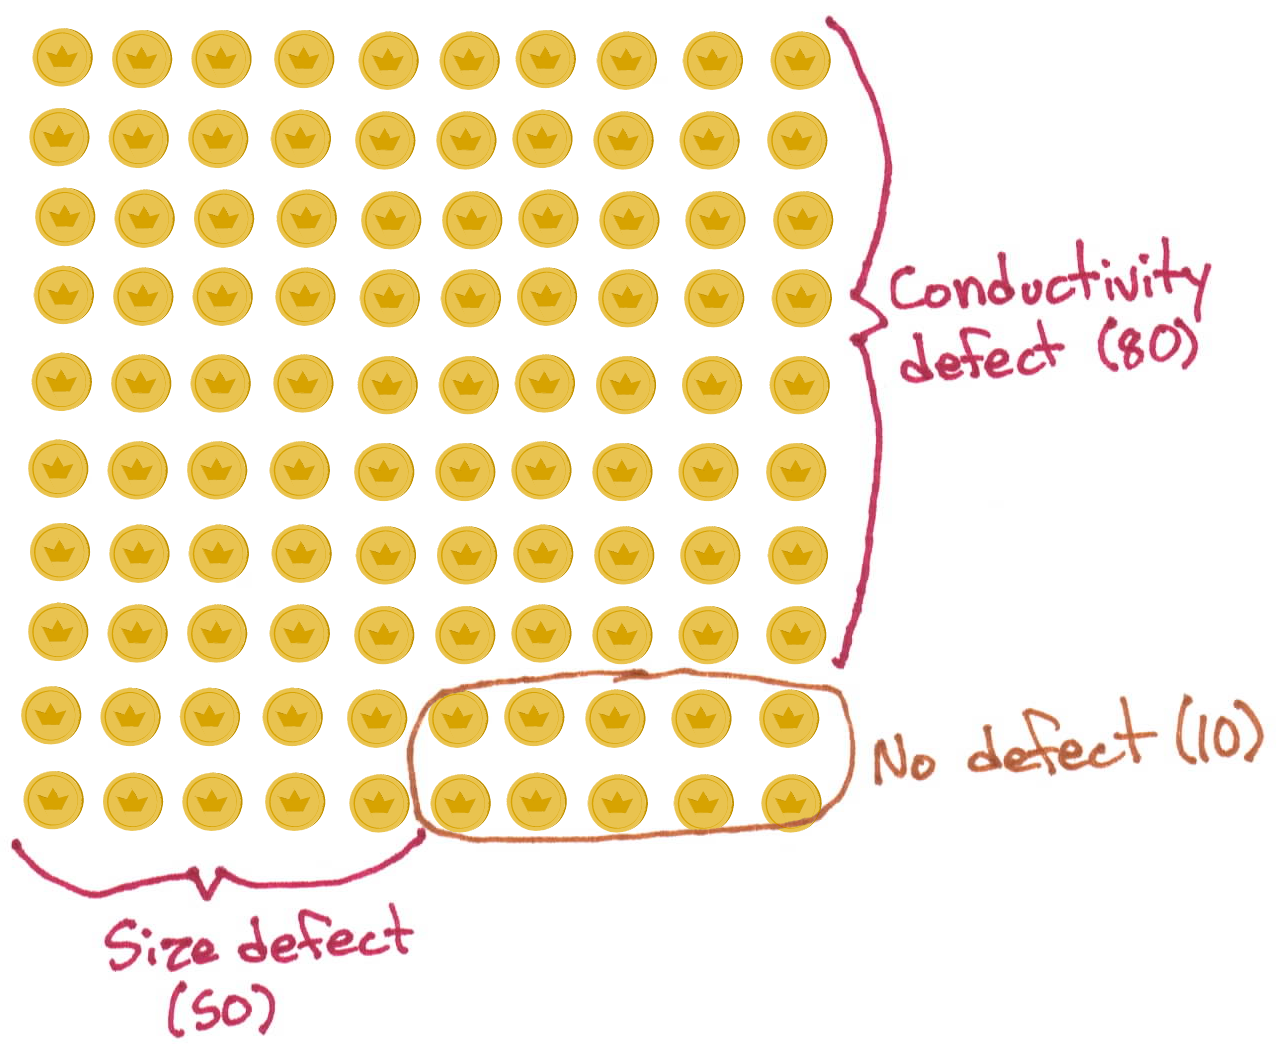 Conductivity
defect (80)
No defect (10)
Size defect
(50)